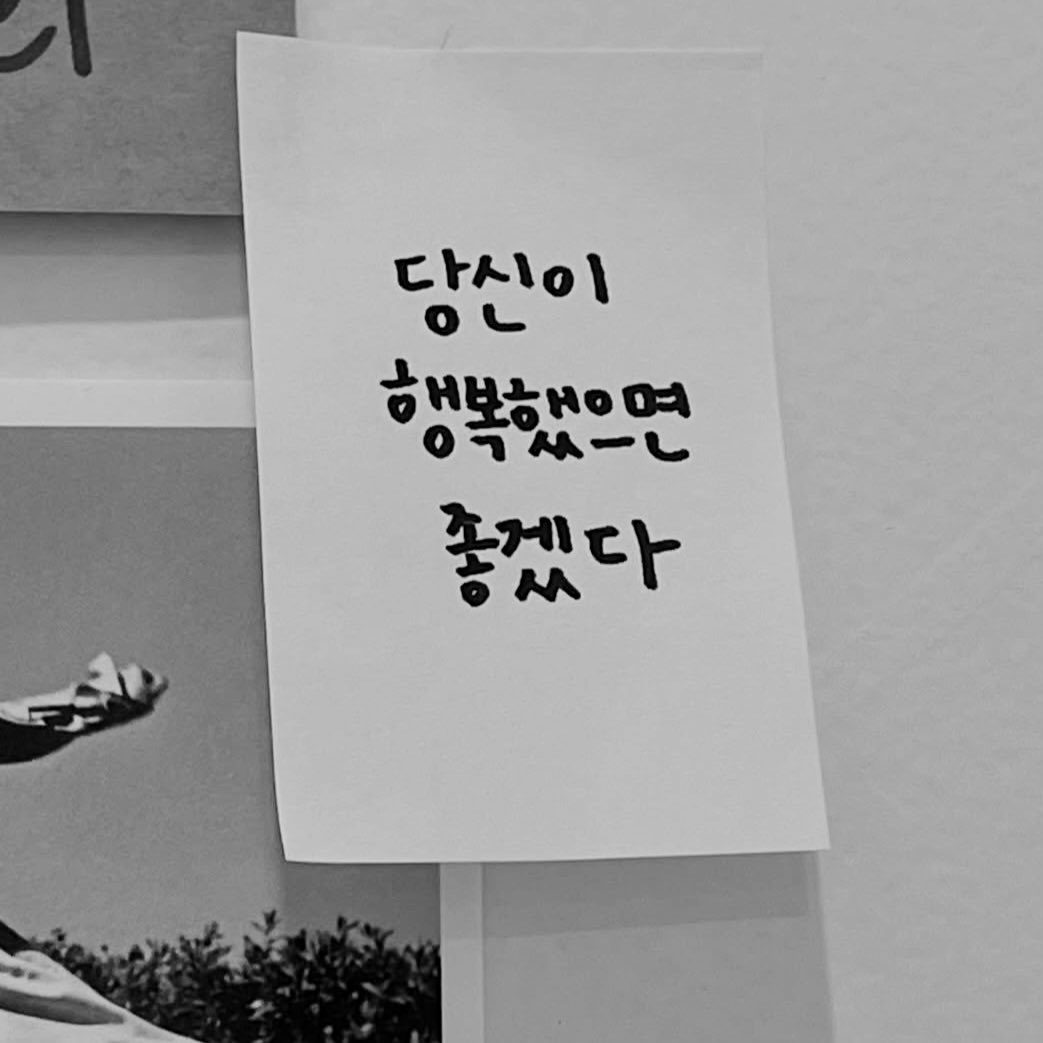 당신이
행복했으면
좋겠다